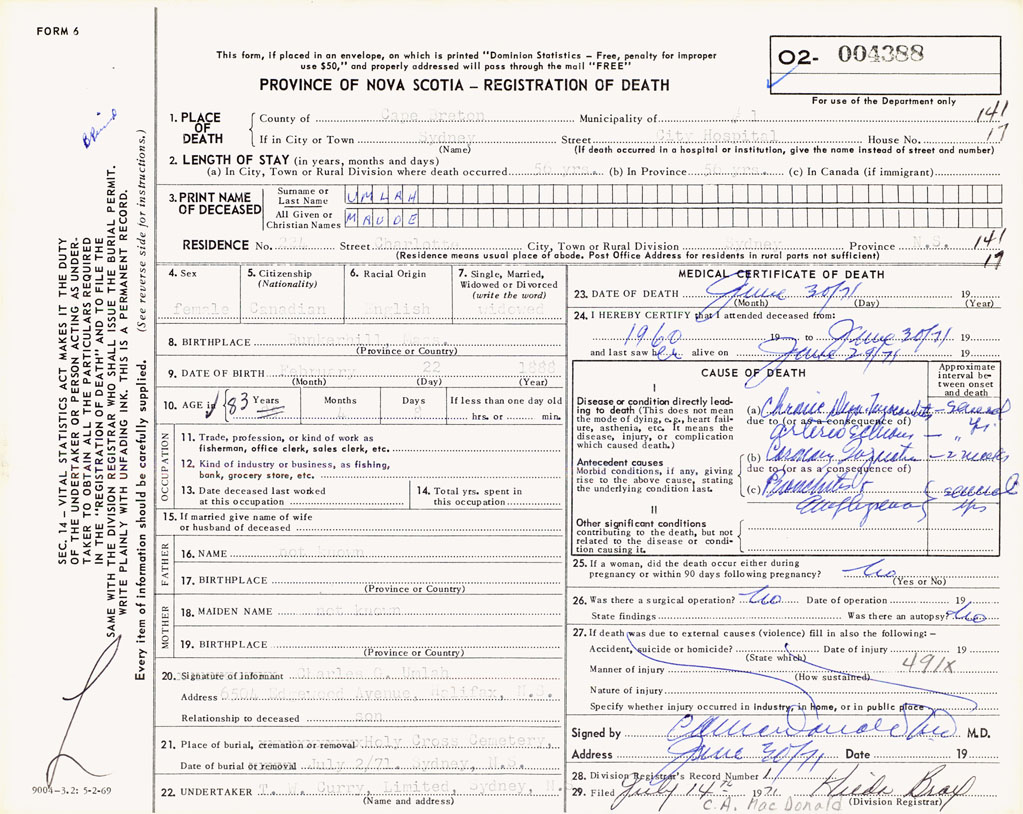 FORM 6
This form, if placed in an envelope, on which is printed "Dominion Statistics – Free, penalty for improper
use $50," and properly addressed will pass through the mail "FREE"
PROVINCE OF NOVA SCOTIA – REGISTRATION OF DEATH
O2- 004388
For use of the Department only
1. PLACE OF DEATH
County of Cape Breton Municipality of 1 141
If in City or Town Sydney Street City Hospital House No. 17
(Name) (If death occurred in a hospital or institution, give the name instead of street and number)
2. LENGTH OF STAY (in years, months and days)
(a) In City, Town or Rural Division where death occurred 56 yrs. (b) In Province 56 yrs. (c) In Canada (if immigrant)
3. PRINT NAME OF DECEASED
Surname or Last Name UMLAH
All Given or Christian Names MAUDE
RESIDENCE No. 224 Street Charlotte City, Town or Rural Division Sydney Province N.S. 141
(Residence means usual place of abode. Post Office Address for residents in rural parts not sufficient) 17
4. Sex
female
5. Citizenship
(Nationality)
Canadian
6. Racial Origin
English
7. Single, Married,
Widowed or Divorced
(write the word)
widowed
8. BIRTHPLACE
(Province or Country)
9. DATE OF BIRTH February 22 1888
(Month) (Day) (Year)
10. AGE in 83 Years Months 4 Days 8 If less than one day old
hrs. or min.
OCCUPATION
11. Trade, profession, or kind of work as
fisherman, office clerk, sales clerk, etc.
12. Kind of industry or business, as fishing,
bank, grocery store, etc.
13. Date deceased last worked
at this occupation
14. Total yrs. spent in
this occupation
15. If married give name of wife
or husband of deceased
FATHER
16. NAME not known
17. BIRTHPLACE
(Province or Country)
MOTHER
18. MAIDEN NAME not known
19. BIRTHPLACE
(Province or Country)
20. Signature of informant Charles Umlah
Address Edgewood Avenue, Halifax, N.S.
Relationship to deceased son
21. Place of burial, cremation or removal Holy Cross Cemetery,
Date of burial or removal July 2/71. Sydney, N.S.
22. UNDERTAKER T. W. Curry, Limited, Sydney, N.
(Name and address)
MEDICAL CERTIFICATE OF DEATH
23. DATE OF DEATH June 30/71 19
(Month) (Day) (Year)
24. I HEREBY CERTIFY that I attended deceased from:
1960 19 to June 30/71 19
and last saw her alive on June 29/71 19
CAUSE OF DEATH
Approximate
interval be-
tween onset
and death
I
Disease or condition directly lead-
ing to death (This does not mean
the mode of dying, e.g., heart fail-
ure, asthenia, etc. It means the
disease, injury, or complication
which caused death.)
(a) Chronic – several
due to (or as a consequence of) yrs
– "
Antecedent causes
Morbid conditions, if any, giving
rise to the above cause, stating
the underlying condition last.
(b) Coronary – 2 weeks
due to (or as a consequence of)
(c) Bronchitis & several
Emphysema yrs
II
Other significant conditions
contributing to the death, but not
related to the disease or condi-
tion causing it.
25. If a woman, did the death occur either during
pregnancy or within 90 days following pregnancy? No
(Yes or No)
26. Was there a surgical operation? No Date of operation 19
State findings Was there an autopsy? No
27. If death was due to external causes (violence) fill in also the following: –
Accident, suicide or homicide? Date of injury 19
(State which)
Manner of injury 491X
(How sustained)
Nature of injury
Specify whether injury occurred in industry, in home, or in public place
Signed by M.D.
Address June 30/71 Date 19
28. Division Registrar's Record Number
29. Filed July 14th 1971
C.A. MacDonald (Division Registrar)
SEC. 14 – VITAL STATISTICS ACT MAKES IT THE DUTY
OF THE UNDERTAKER OR PERSON ACTING AS UNDER-
TAKER TO OBTAIN ALL THE PARTICULARS REQUIRED
IN THE "REGISTRATION OF DEATH" AND TO FILE THE
SAME WITH THE DIVISION REGISTRAR WHO SHALL ISSUE THE BURIAL PERMIT.
WRITE PLAINLY WITH UNFADING INK. THIS IS A PERMANENT RECORD.
Every item of information should be carefully supplied. (See reverse side for instructions.)
9004–3.2: 5-2-69